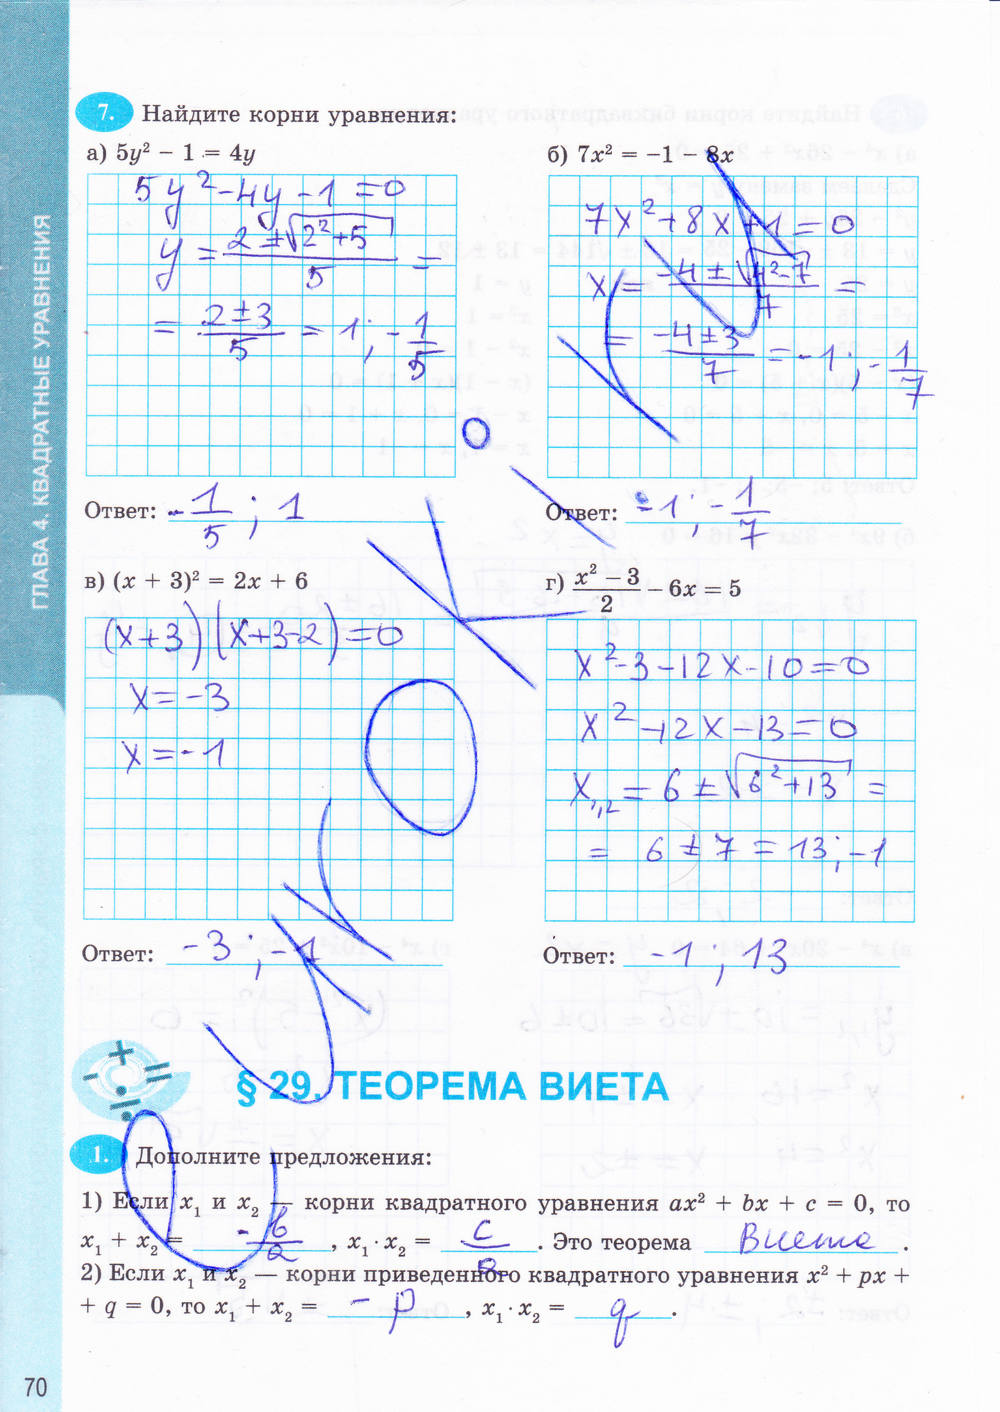 ГЛАВА 4. КВАДРАТНЫЕ УРАВНЕНИЯ
7. Найдите корни уравнения:
а) 5y² − 1 = 4y
5y² − 4y − 1 = 0
y = (2 ± √(2² + 5))/5 =
= (2 ± 3)/5 = 1; −1/5
Ответ: −1/5; 1
б) 7x² = −1 − 8x
7x² + 8x + 1 = 0
x = (−4 ± √(4² − 7))/7 =
= (−4 ± 3)/7 = −1; −1/7
Ответ: −1; −1/7
в) (x + 3)² = 2x + 6
(x + 3)(x + 3 − 2) = 0
x = −3
x = −1
Ответ: −3; −1
г) (x² − 3)/2 − 6x = 5
x² − 3 − 12x − 10 = 0
x² − 12x − 13 = 0
x₁,₂ = 6 ± √(6² + 13) =
= 6 ± 7 = 13; −1
Ответ: −1; 13
§ 29. ТЕОРЕМА ВИЕТА
1. Дополните предложения:
1) Если x₁ и x₂ — корни квадратного уравнения ax² + bx + c = 0, то
x₁ + x₂ = −b/a, x₁ · x₂ = c/a. Это теорема Виета.
2) Если x₁ и x₂ — корни приведенного квадратного уравнения x² + px +
+ q = 0, то x₁ + x₂ = −p, x₁ · x₂ = q.
70